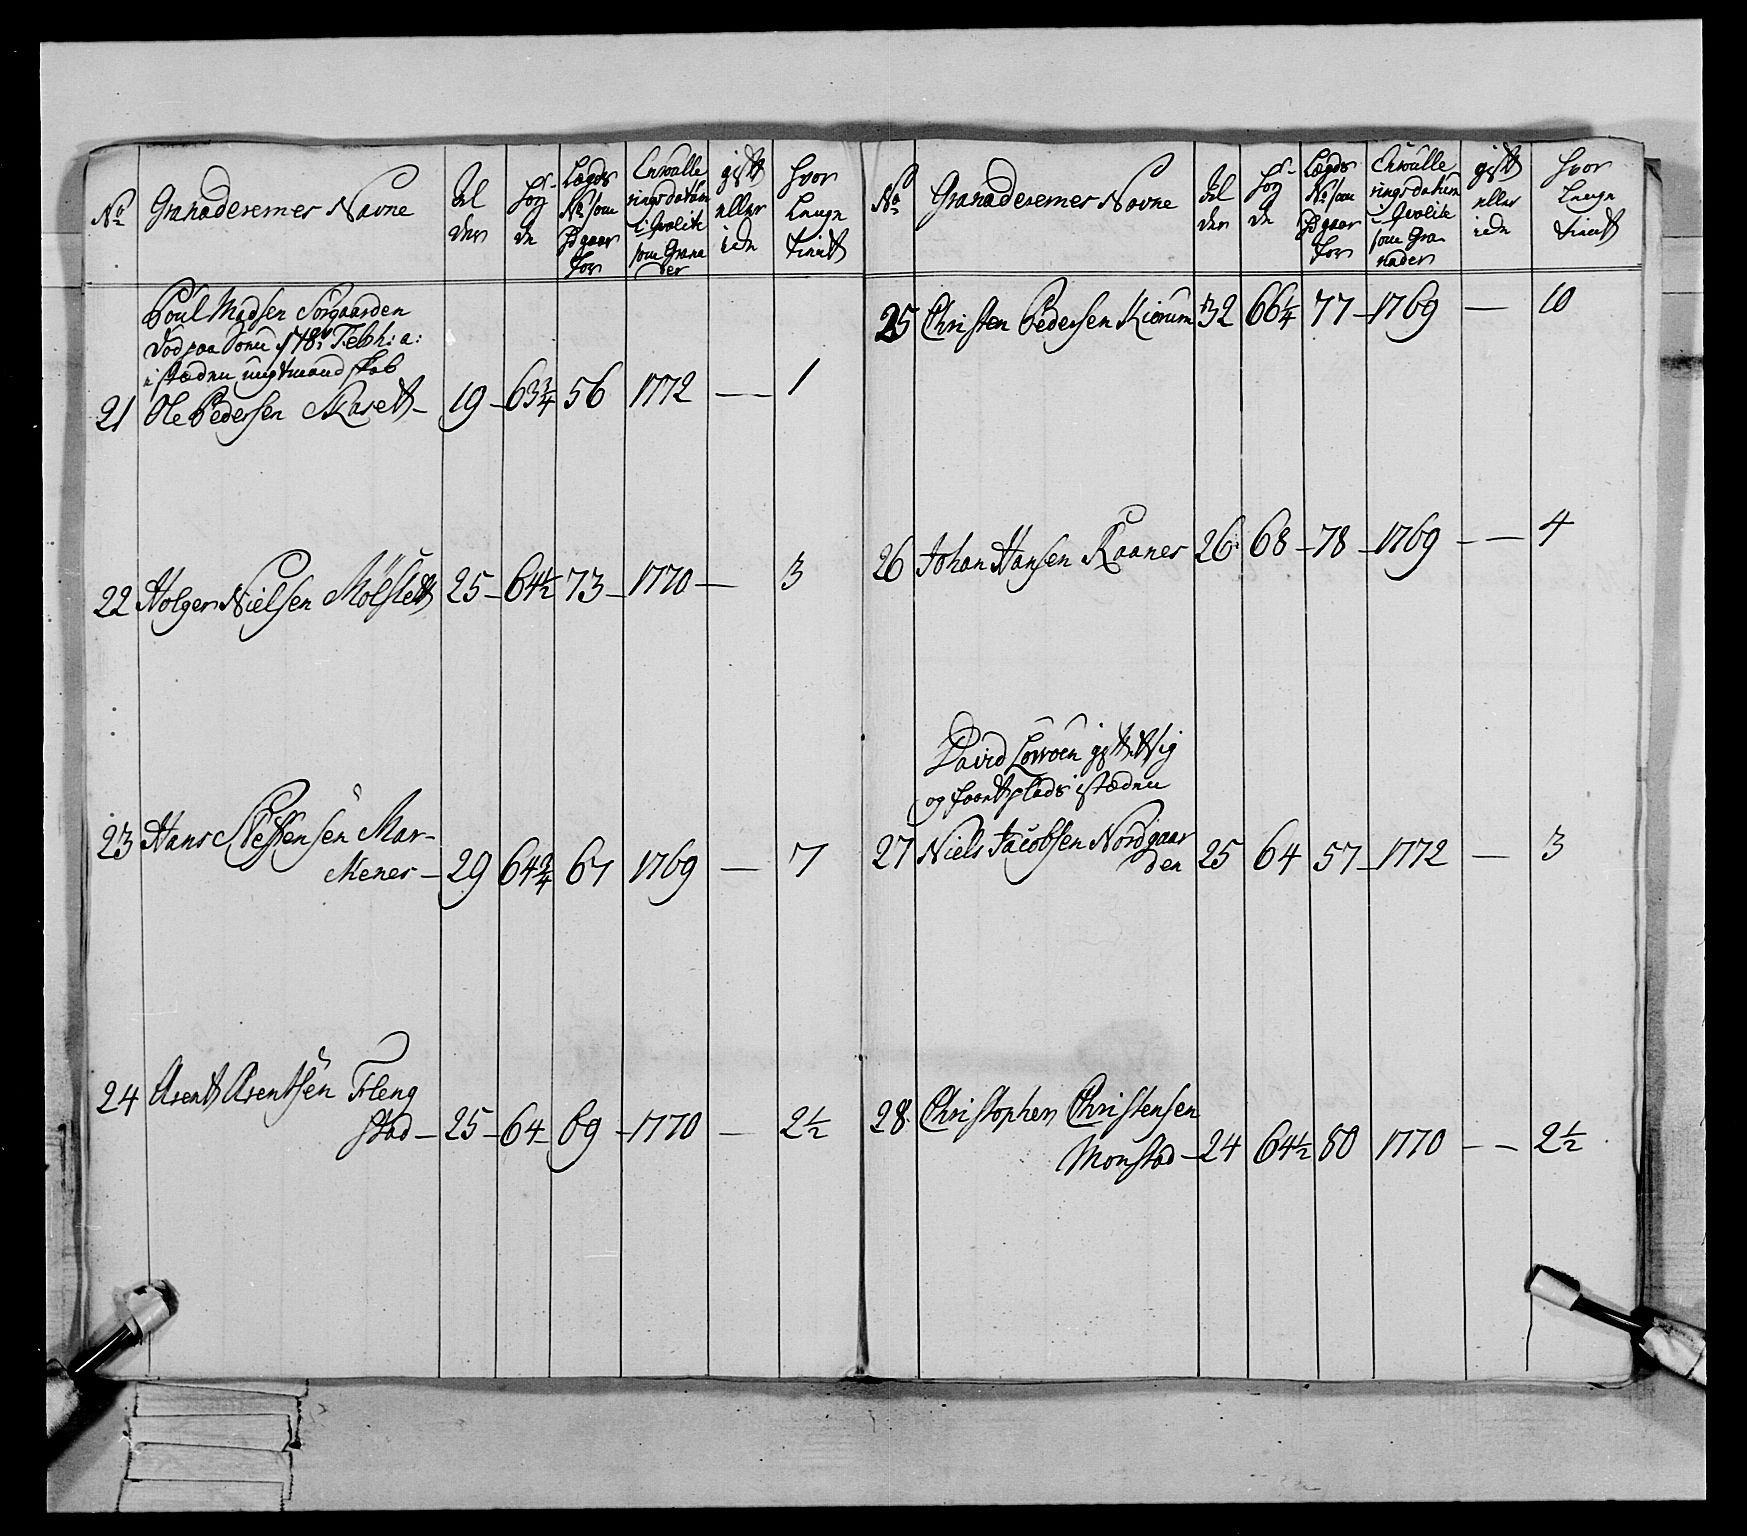 No
Granaderernes Navne
Al
der
Høy
de
Lægds
No som
gaar
for
Enroulle
rings datum
i Qvalite
som Grana
der
gift
eller
ide
Hvor
Længe
tient
Poul Madsen Sørgaarden
Død paa 18de Febr: a:
21 Ole Pedersen Skaret - 19 - 63 3/4 56 1772 - - 1
22 Holger Nielsen Mölslett 25 - 64 1/2 73 - 1770 - 3
23 Hans Steffensen Mar-
kenes - 29 64 3/4 67 1769 - 7
24 Arent Arentsen Fleng
stad - 25 - 64 - 69 - 1770 - 2 1/2
No
Granaderernes Navne
Al
der
Høy
de
Lægds
No som
gaar
for
Enroulle
rings datum
i Qvalite
som Gra
nader
gift
eller
ide
Hvor
Længe
tient
25 Christen Pedersen Kiørum 32 66 1/4 77 - 1769 - 10
26 Johan Hansen Raanes 26 68 - 78 - 1769 - - 4
David gift sig
og plads istæden
27 Niels Jacobsen Nordgaar
den 25 64 57 - 1772 - 3
28 Christopher Christensen
Monstad - 24 64 1/2 80 1770 - - 2 1/2